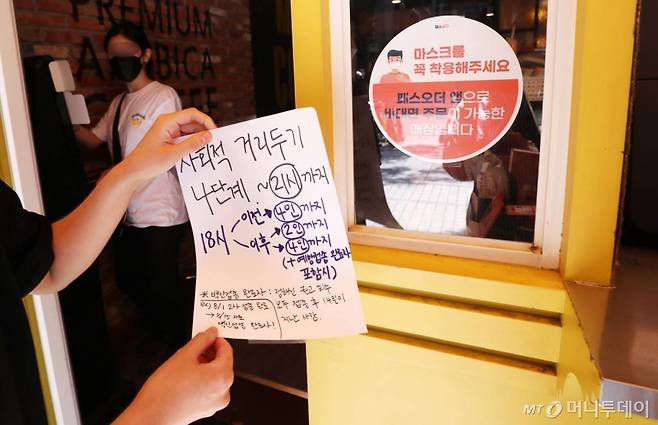 PREMIUM
ARABICA
COFFEE
마스크를
꼭 착용해주세요
패스오더 앱으로
비대면 주문이 가능한
매장입니다
사회적 거리두기
4단계 ~21시까지
18시 이전→4인까지
이후→2인까지
→4인까지
(+예방접종 완료자
포함시)
※백신접종 완료자: 접종
모두 접종 후 14일이
지난 사람.
ex) 8/1 2차 접종 완료
백신접종 완료자!
MT 머니투데이